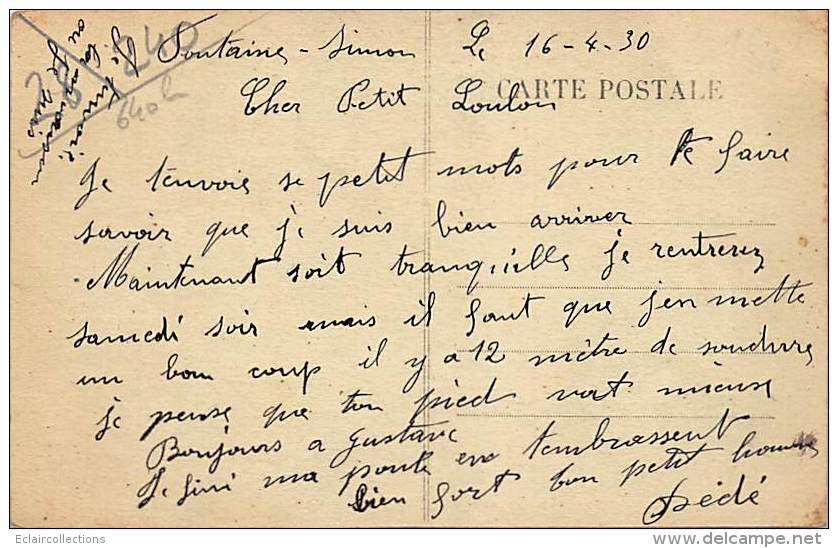 Fontaine-Simon Le 16-4-30
CARTE POSTALE
Cher Petit Loulou
Je t'envoie se petit mots pour te faire
savoir que je suis bien arriver
Maintenant soit tranquille je rentrerez
samedi soir mais il faut que j'en mette
un bon coup il y a 12 mètre de soudure
je pense que ton pied vat mieux
Bonjours a Gustave
Je fini ma poule en t'embrassent
bien fort ton petit homme
Dédé
Je t'envoie
ou je suis
28
240
640h
Eclaircollections
delcampe.net